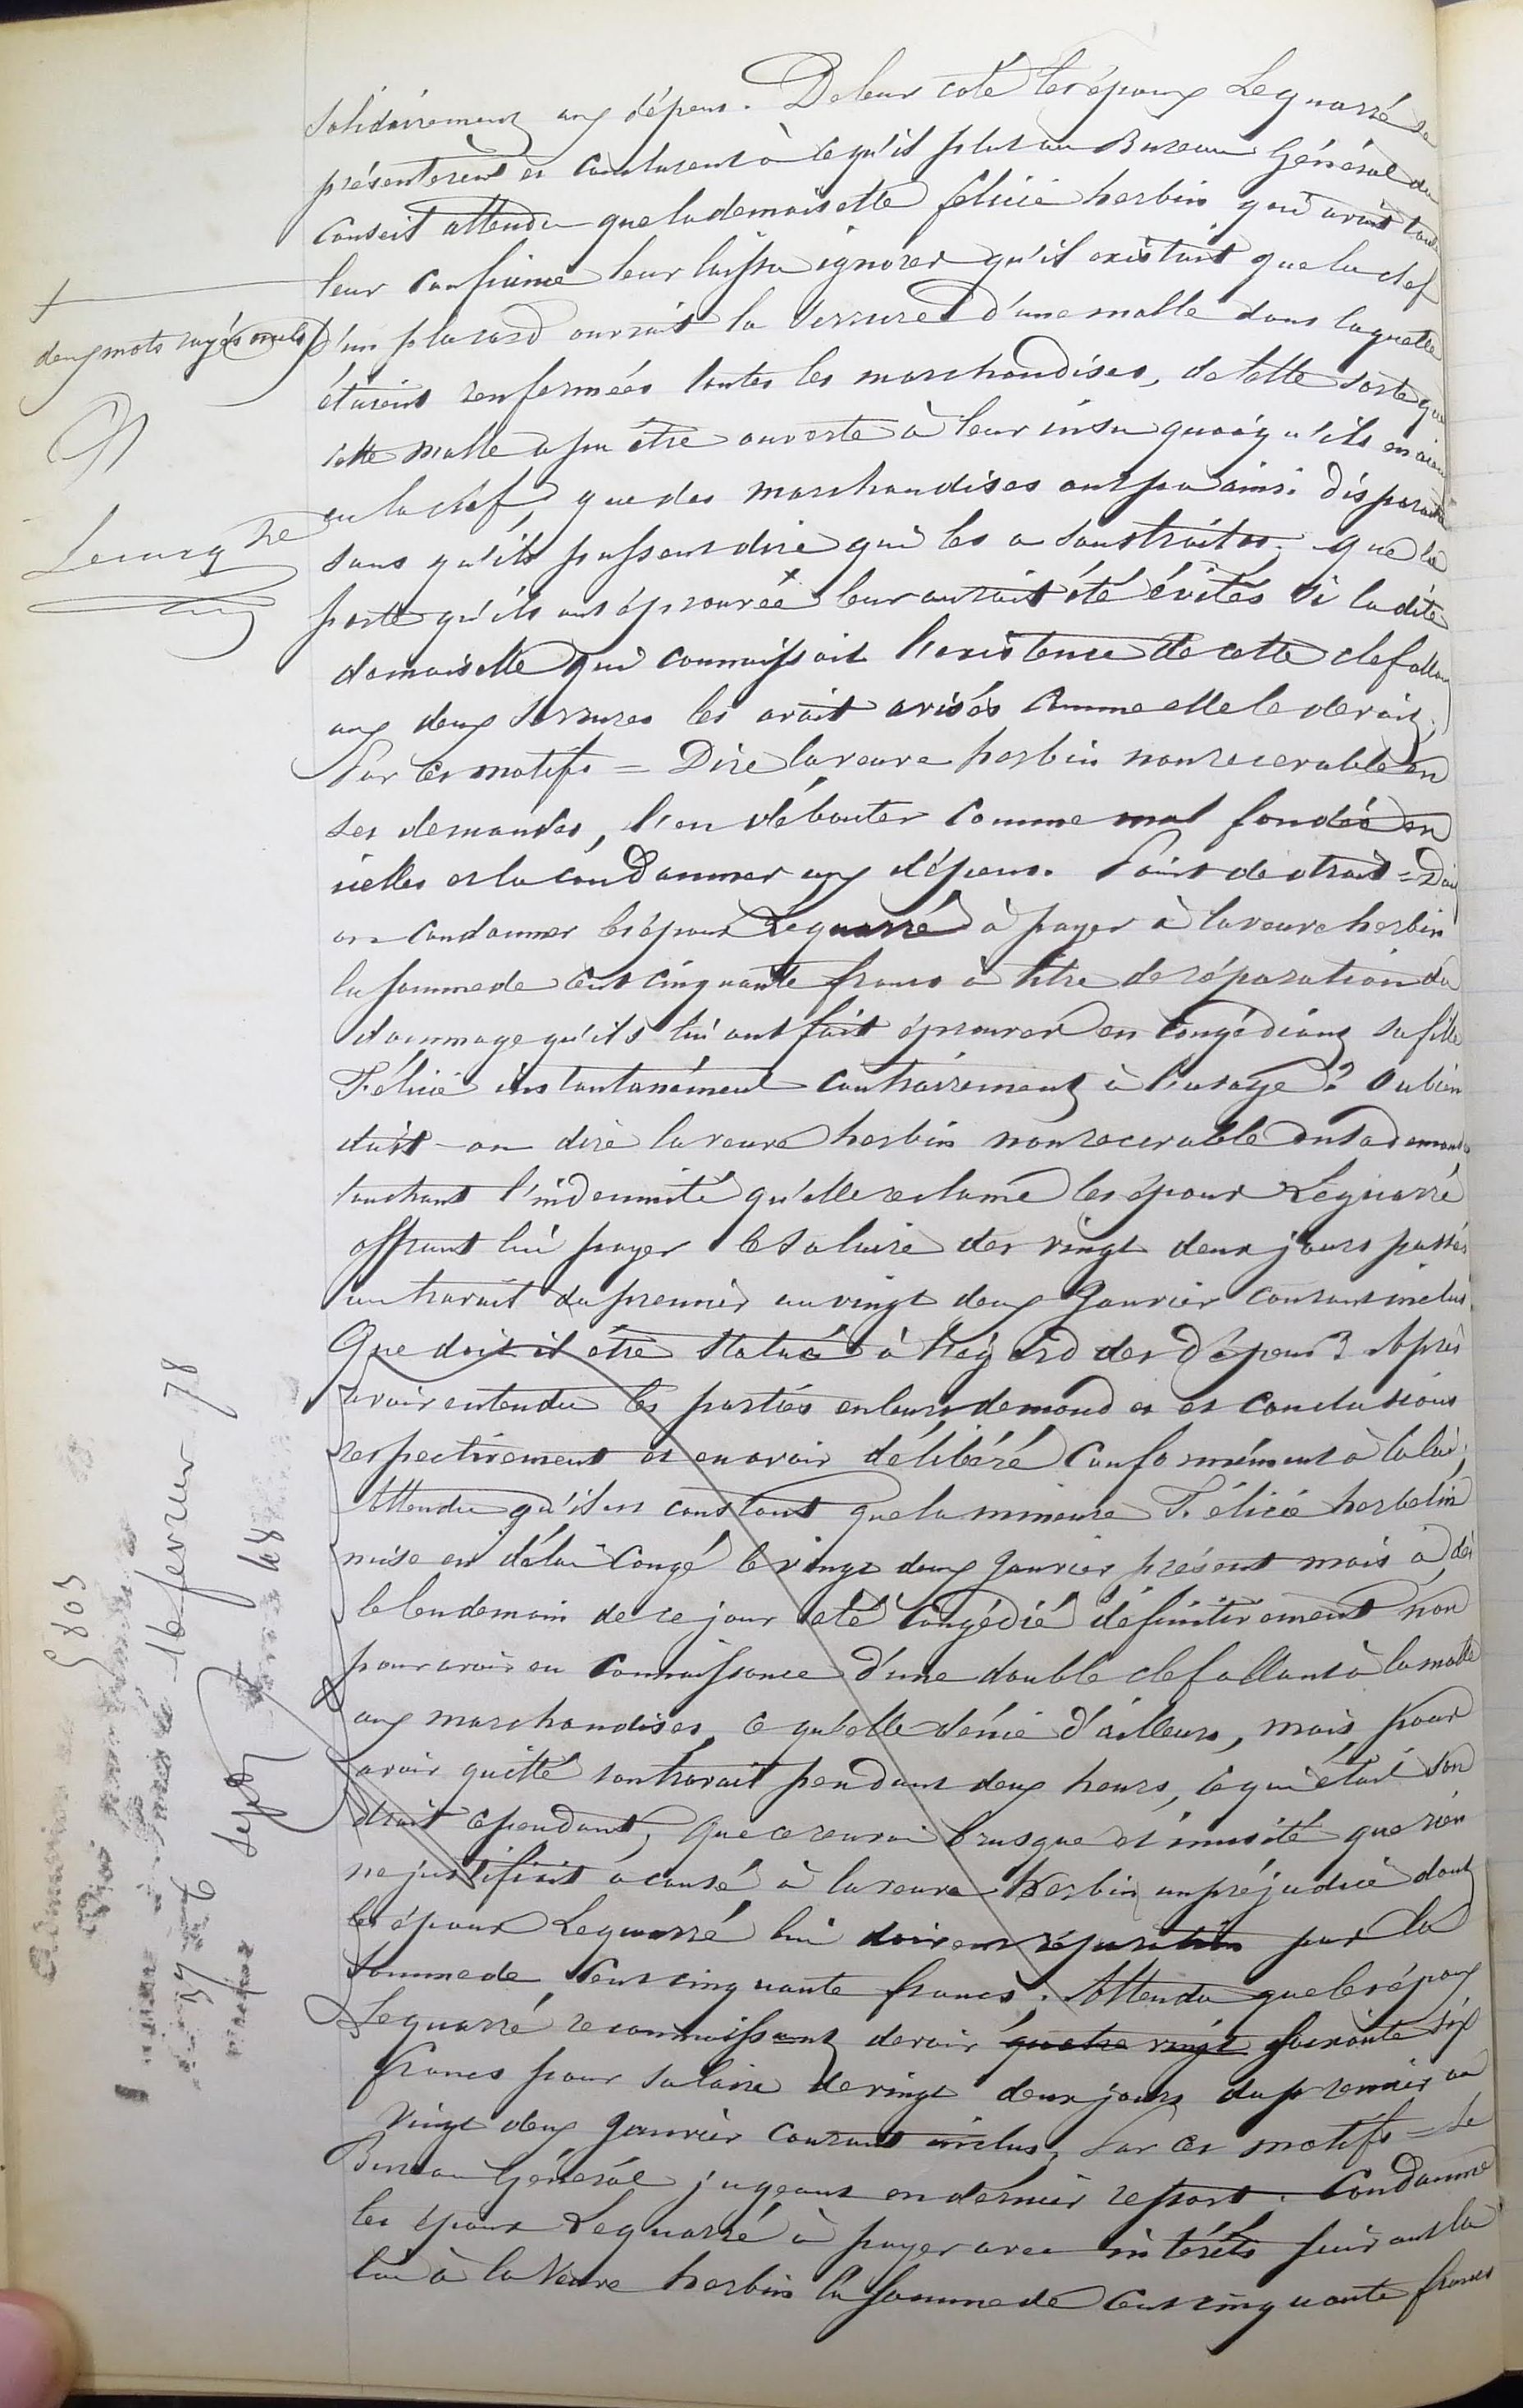 solidairement aux dépens. De leur coté les époux Lequarré se
présentèrent et conclurent à ce qu'il plut au Bureau Général du
Conseil attendu que la demoiselle félicie herbin qui avait toute
leur confiance leur laissa ignorer qu'il existait que la clef
d'un placard ouvrait la serrure d'une malle dans laquelle
étaient renfermées toutes les marchandises, de telle sorte que
cette malle a pu être ouverte à leur insu quoiqu'ils en aient
eu la clef, que des marchandises ont pu ainsi disparaitre
sans qu'ils pussent dire qui les a soustraites; que la
perte qu'ils ont éprouvée leur aurait été évitée si la dite
demoiselle qui connaissait l'existence de cette clef allant
aux deux serrures les avait avisés comme elle le devait;
Par ces motifs = Dire la veuve herbin non recevable en
ses demandes, l'en débouter comme mal fondée en
icelles et la condamner aux dépens. Point de droit = Doit
on condamner les époux Lequarré à payer à la veuve herbin
la somme de cent cinquante francs à titre de réparation du
dommage qu'ils lui ont fait éprouver en congédiant sa fille
Félicie instantanément contrairement à l'usage? Ou bien
doit-on dire la veuve herbin non recevable en sa demande
touchant l'indemnité qu'elle réclame les époux Lequarré
offrant lui payer le salaire des vingt deux jours passés
au travail du premier au vingt deux Janvier courant inclus.
Que doit-il être statué à l'égard des dépens? Après
avoir entendu les parties en leurs demandes et conclusions
respectivement et en avoir délibéré conformément à la loi;
Attendu qu'il est constant que la mineure Félicie herbelin
mise en délai congé le vingt deux Janvier présent mois a, dès
le lendemain de ce jour été congédié définitivement non
pour avoir eu connaissance d'une double clef allant à la malle
aux marchandises, ce qu'elle dénie d'ailleurs, mais pour
avoir quitté son travail pendant deux heures, ce qui était son
droit cependant, que ce renvoi brusque et inusité que rien
ne justifiait a causé à la veuve herbin un préjudice dont
les époux Lequarré lui doivent réparation par la
somme de cent cinquante francs; Attendu que les époux
Lequarré reconnaissent devoir quatre vingt soixante six
francs pour salaire de vingt deux jours du premier au
vingt deux Janvier courant inclus; Par ces motifs = Le
Bureau Général jugeant en dernier ressort; Condamne
les époux Lequarré à payer avec intérêts suivant la
loi à la Veuve herbin la somme de cent cinquante francs
deux mots rayés nuls
Lecucq
16 fevrier 78